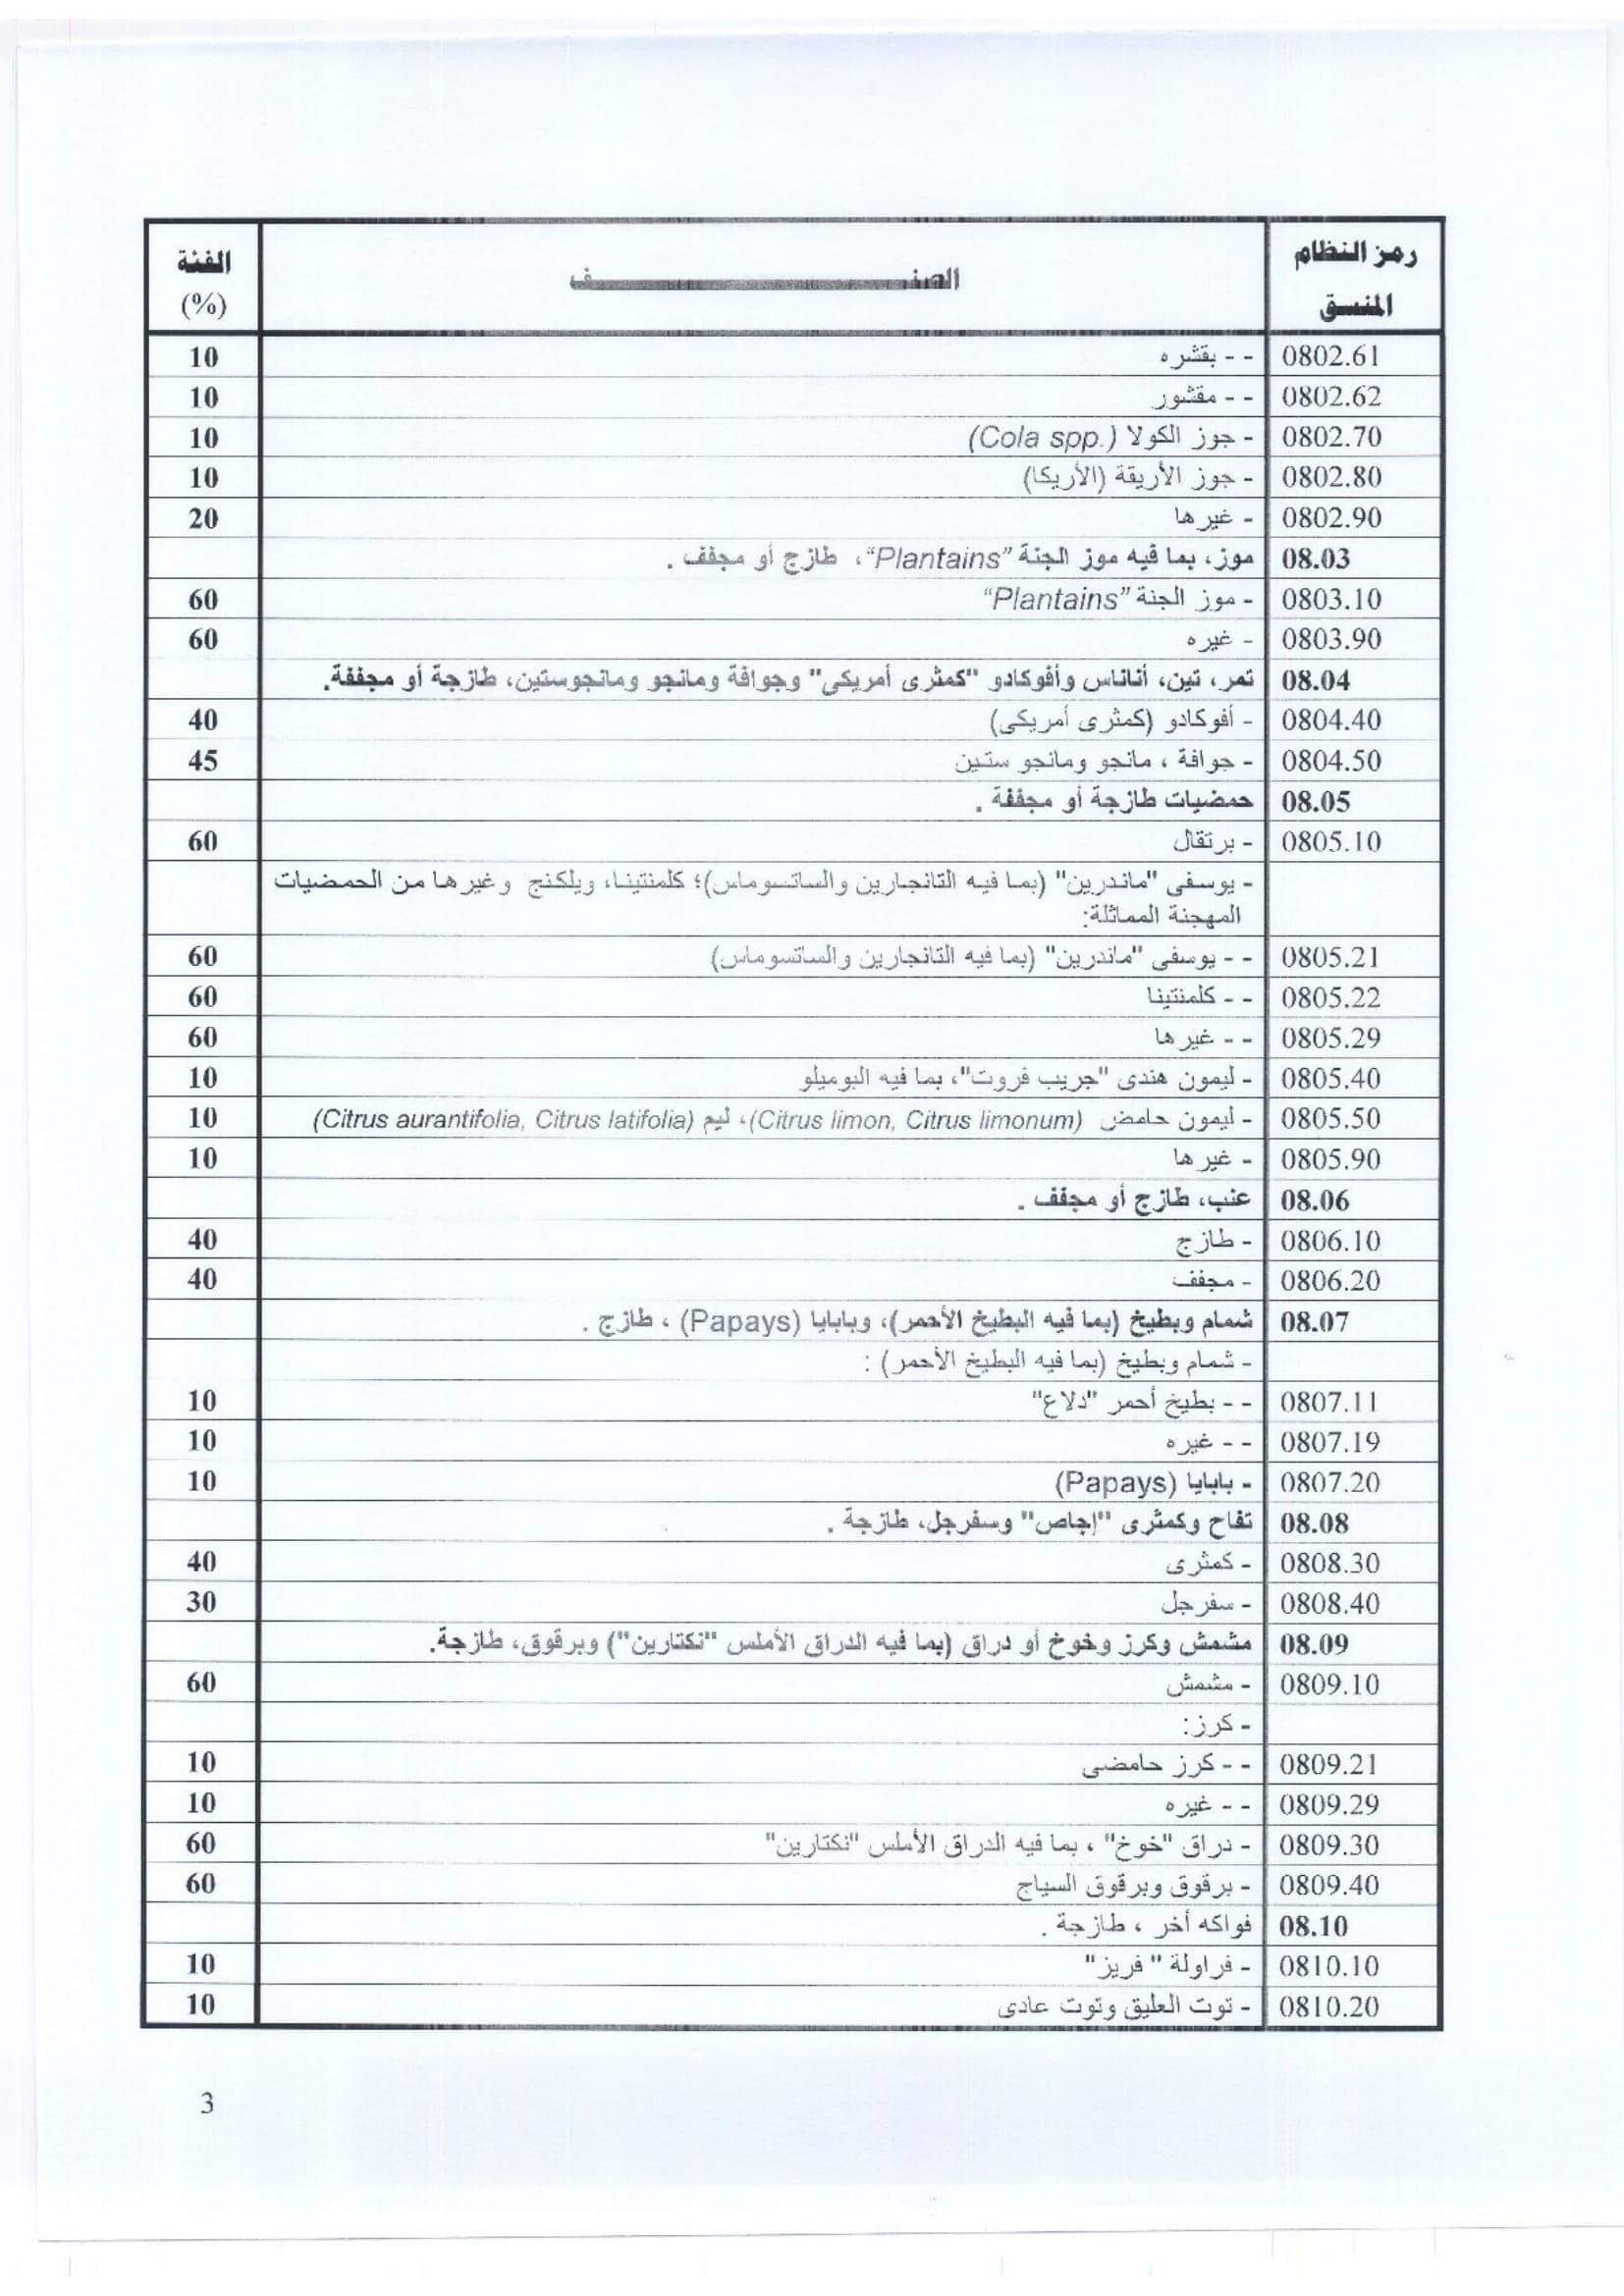 رمز النظام المنسق الصنـــــــــف الفئة (%)
0802.61 - - بقشره 10
0802.62 - - مقشور 10
0802.70 - جوز الكولا (Cola spp.) 10
0802.80 - جوز الأريقة (الأريكا) 10
0802.90 - غيرها 20
08.03 موز، بما فيه موز الجنة “Plantains”، طازج أو مجفف .
0803.10 - موز الجنة “Plantains” 60
0803.90 - غيره 60
08.04 تمر، تين، أناناس وأفوكادو "كمثرى أمريكى" وجوافة ومانجو ومانجوستين، طازجة أو مجففة.
0804.40 - أفوكادو (كمثرى أمريكى) 40
0804.50 - جوافة ، مانجو ومانجو ستين 45
08.05 حمضيات طازجة أو مجففة .
0805.10 - برتقال 60
- يوسفى "ماندرين" (بما فيه التانجارين والساتسوماس)؛ كلمنتينا، ويلكنج وغيرها من الحمضيات
المهجنة المماثلة:
0805.21 - - يوسفى "ماندرين" (بما فيه التانجارين والساتسوماس) 60
0805.22 - - كلمنتينا 60
0805.29 - - غيرها 60
0805.40 - ليمون هندى "جريب فروت"، بما فيه البوميلو 10
0805.50 - ليمون حامض (Citrus limon, Citrus limonum)، ليم (Citrus aurantifolia, Citrus latifolia) 10
0805.90 - غيرها 10
08.06 عنب، طازج أو مجفف .
0806.10 - طازج 40
0806.20 - مجفف 40
08.07 شمام وبطيخ (بما فيه البطيخ الأحمر)، وبابايا (Papays) ، طازج .
- شمام وبطيخ (بما فيه البطيخ الأحمر) :
0807.11 - - بطيخ أحمر "دلاع" 10
0807.19 - - غيره 10
0807.20 - بابايا (Papays) 10
08.08 تفاح وكمثرى "إجاص" وسفرجل، طازجة .
0808.30 - كمثرى 40
0808.40 - سفرجل 30
08.09 مشمش وكرز وخوخ أو دراق (بما فيه الدراق الأملس "نكتارين") وبرقوق، طازجة.
0809.10 - مشمش 60
- كرز:
0809.21 - - كرز حامضى 10
0809.29 - - غيره 10
0809.30 - دراق "خوخ" ، بما فيه الدراق الأملس "نكتارين" 60
0809.40 - برقوق وبرقوق السياج 60
08.10 فواكه أخر ، طازجة .
0810.10 - فراولة " فريز" 10
0810.20 - توت العليق وتوت عادى 10
3